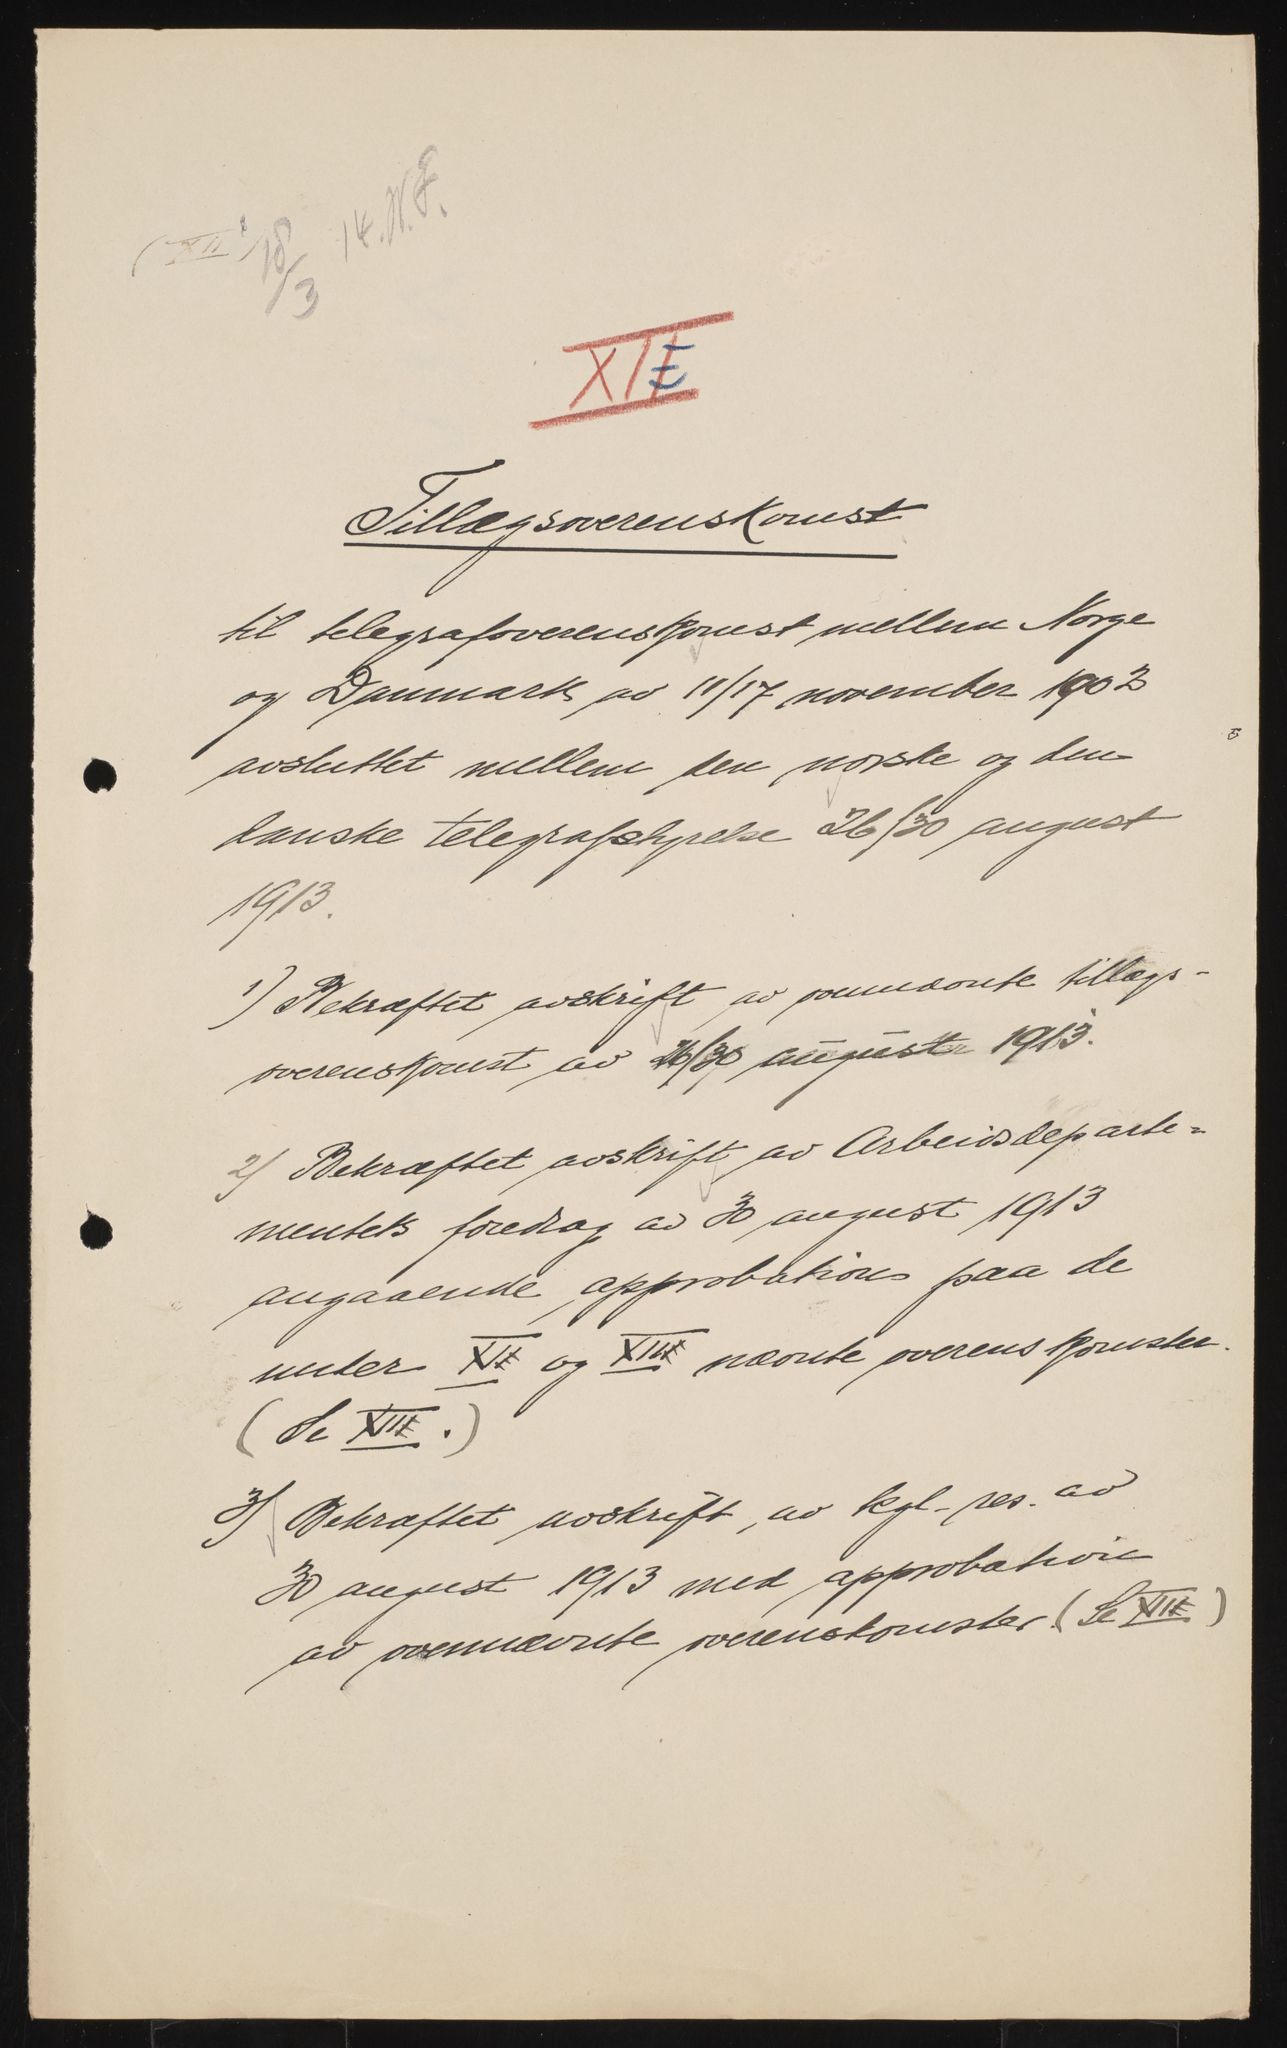 (XII)
18/3 14. N.J.
XII
Tillægsoverenskomst
til telegrafoverenskomst mellem Norge
og Danmark av 11/17 november 1902
avsluttet mellem den norske og den
danske telegrafstyrelse 26/30 august
1913.
1) Bekræftet avskrift av ovennævnte tillægs-
overenskomst av 26/30 august 1913.
2) Bekræftet avskrift av Arbeidsdeparte-
mentets foredrag av 30 august 1913
angaaende approbation paa de
under XII og XIII nævnte overenskomster.
(Se XIII.)
3) Bekræftet avskrift av kgl. res. av
30 august 1913 med approbation
av ovennævnte overenskomster. (Se XIII)